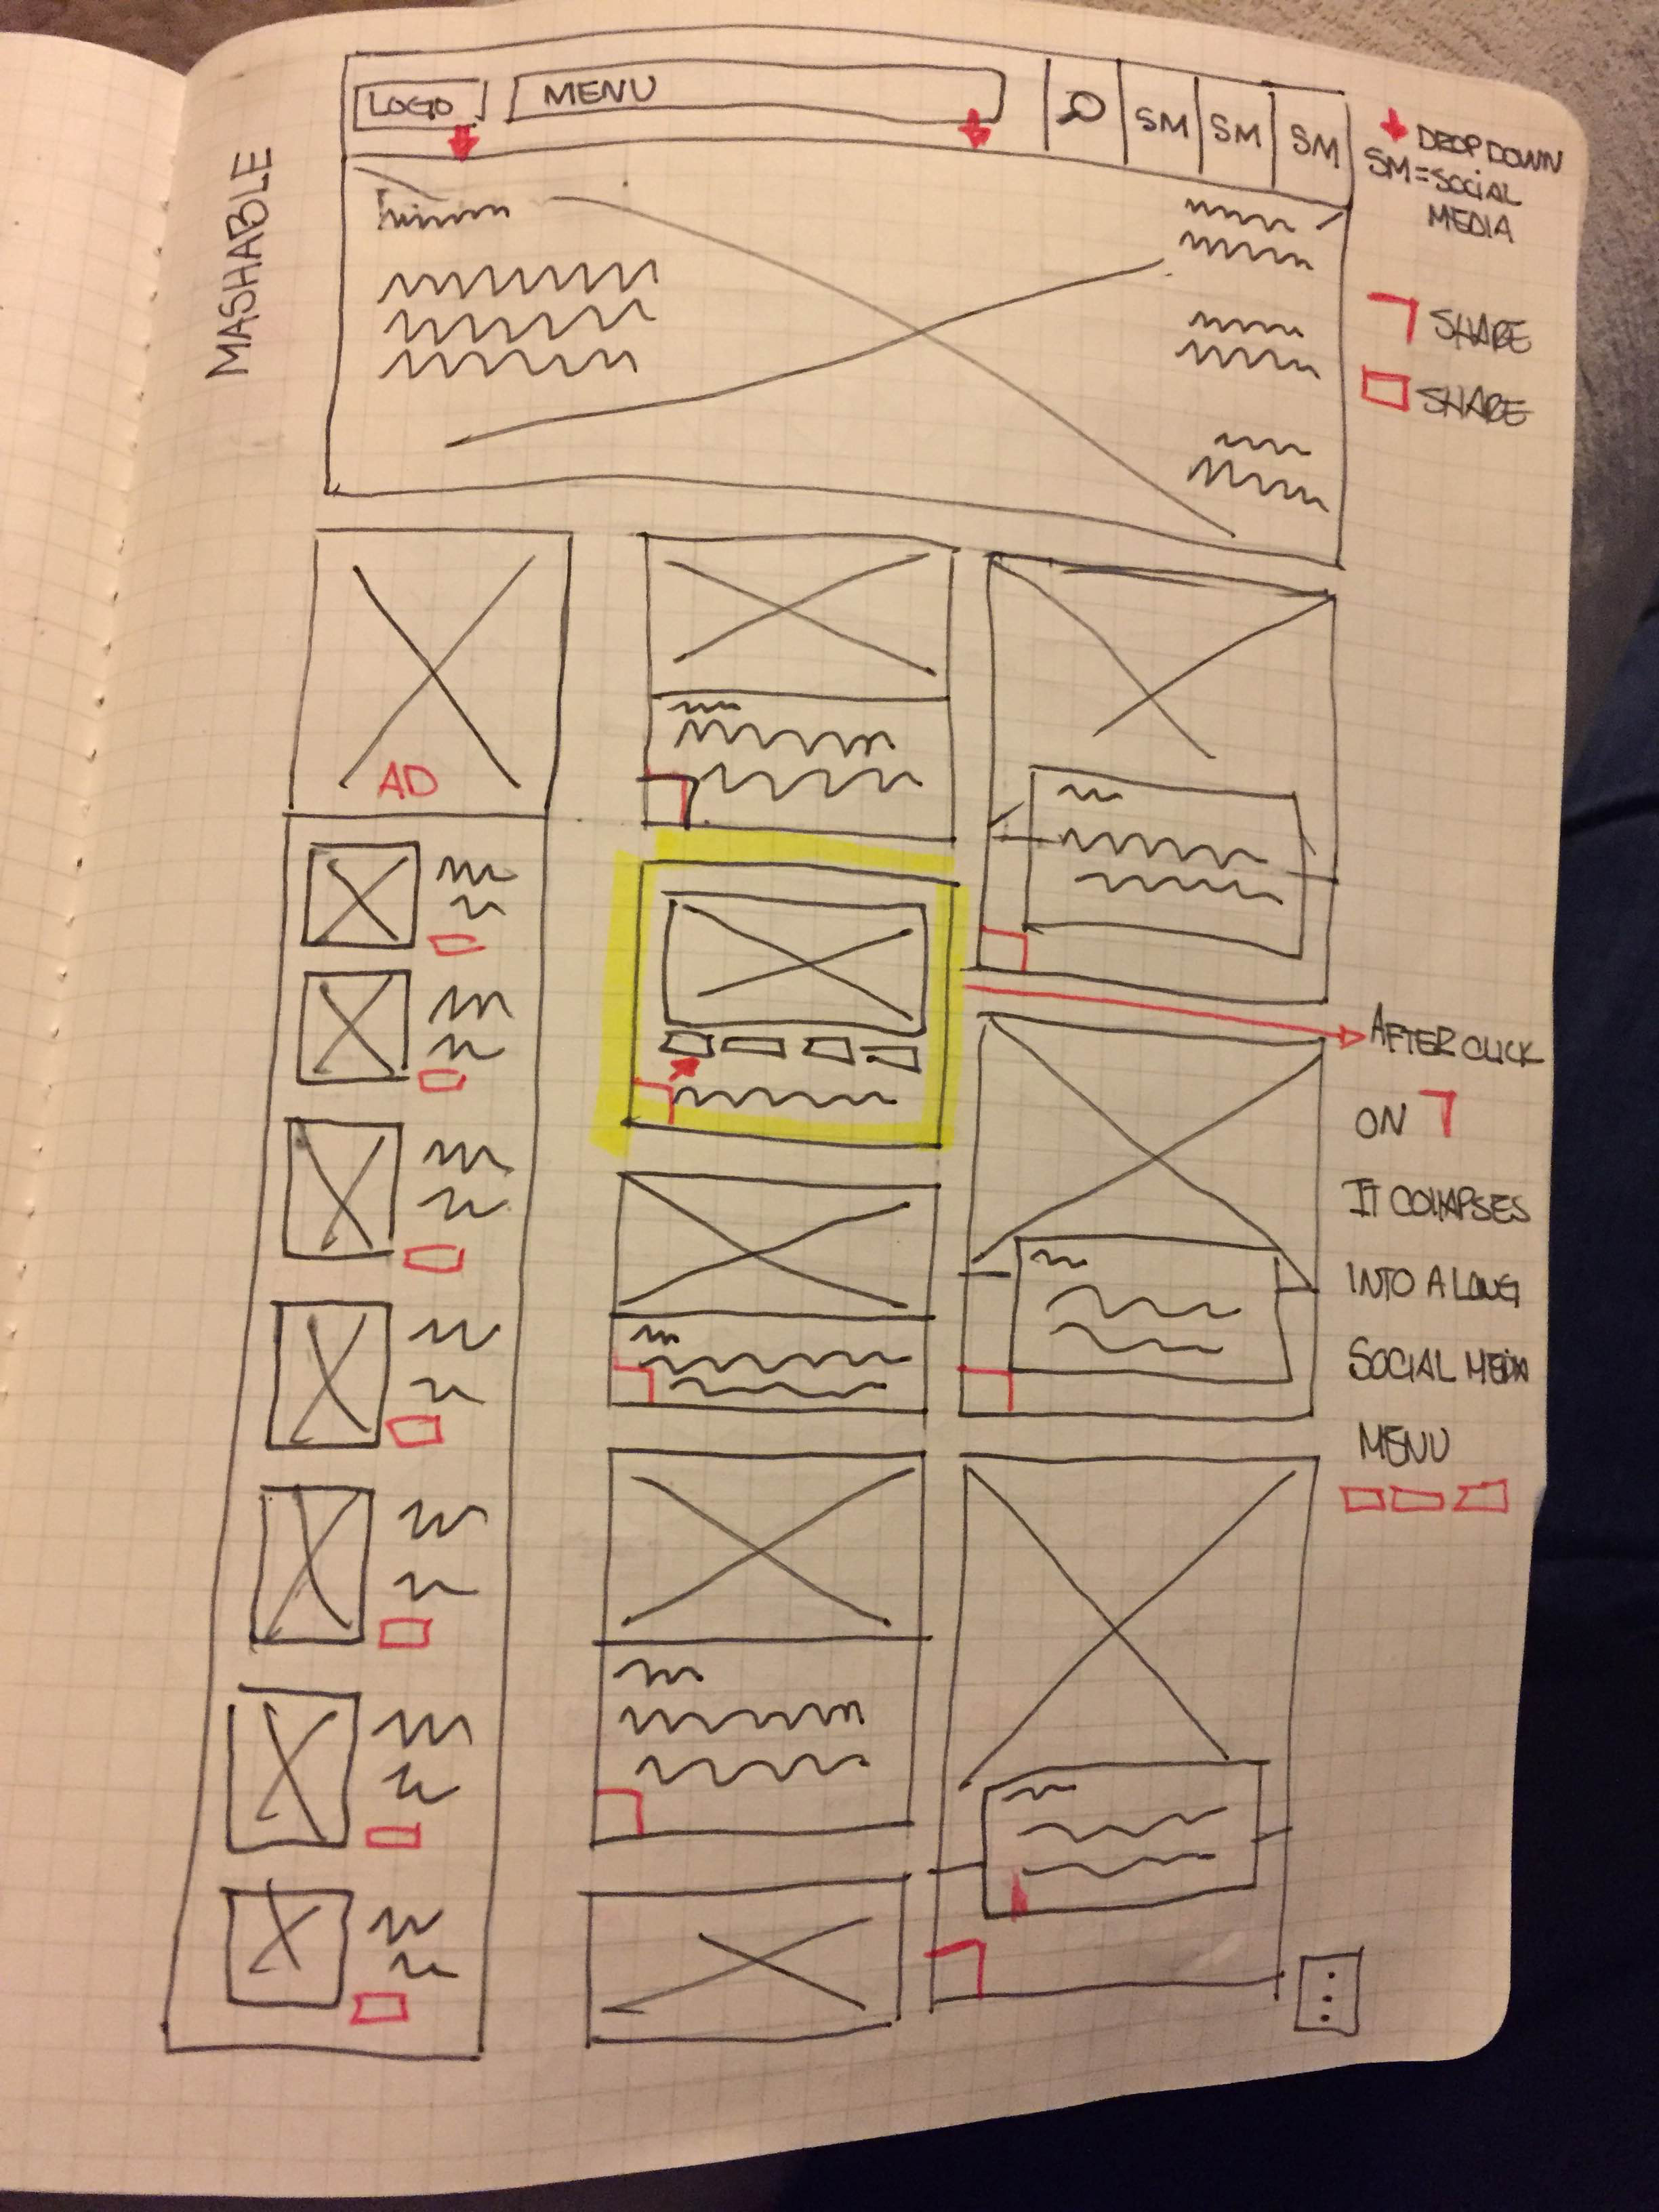 MASHABLE
LOGO
MENU
SM
SM
SM
DROP DOWN
SM=SOCIAL
MEDIA
SHARE
SHARE
AD
AFTER CLICK
ON
IT COLLAPSES
INTO A LONG
SOCIAL MEDIA
MENU